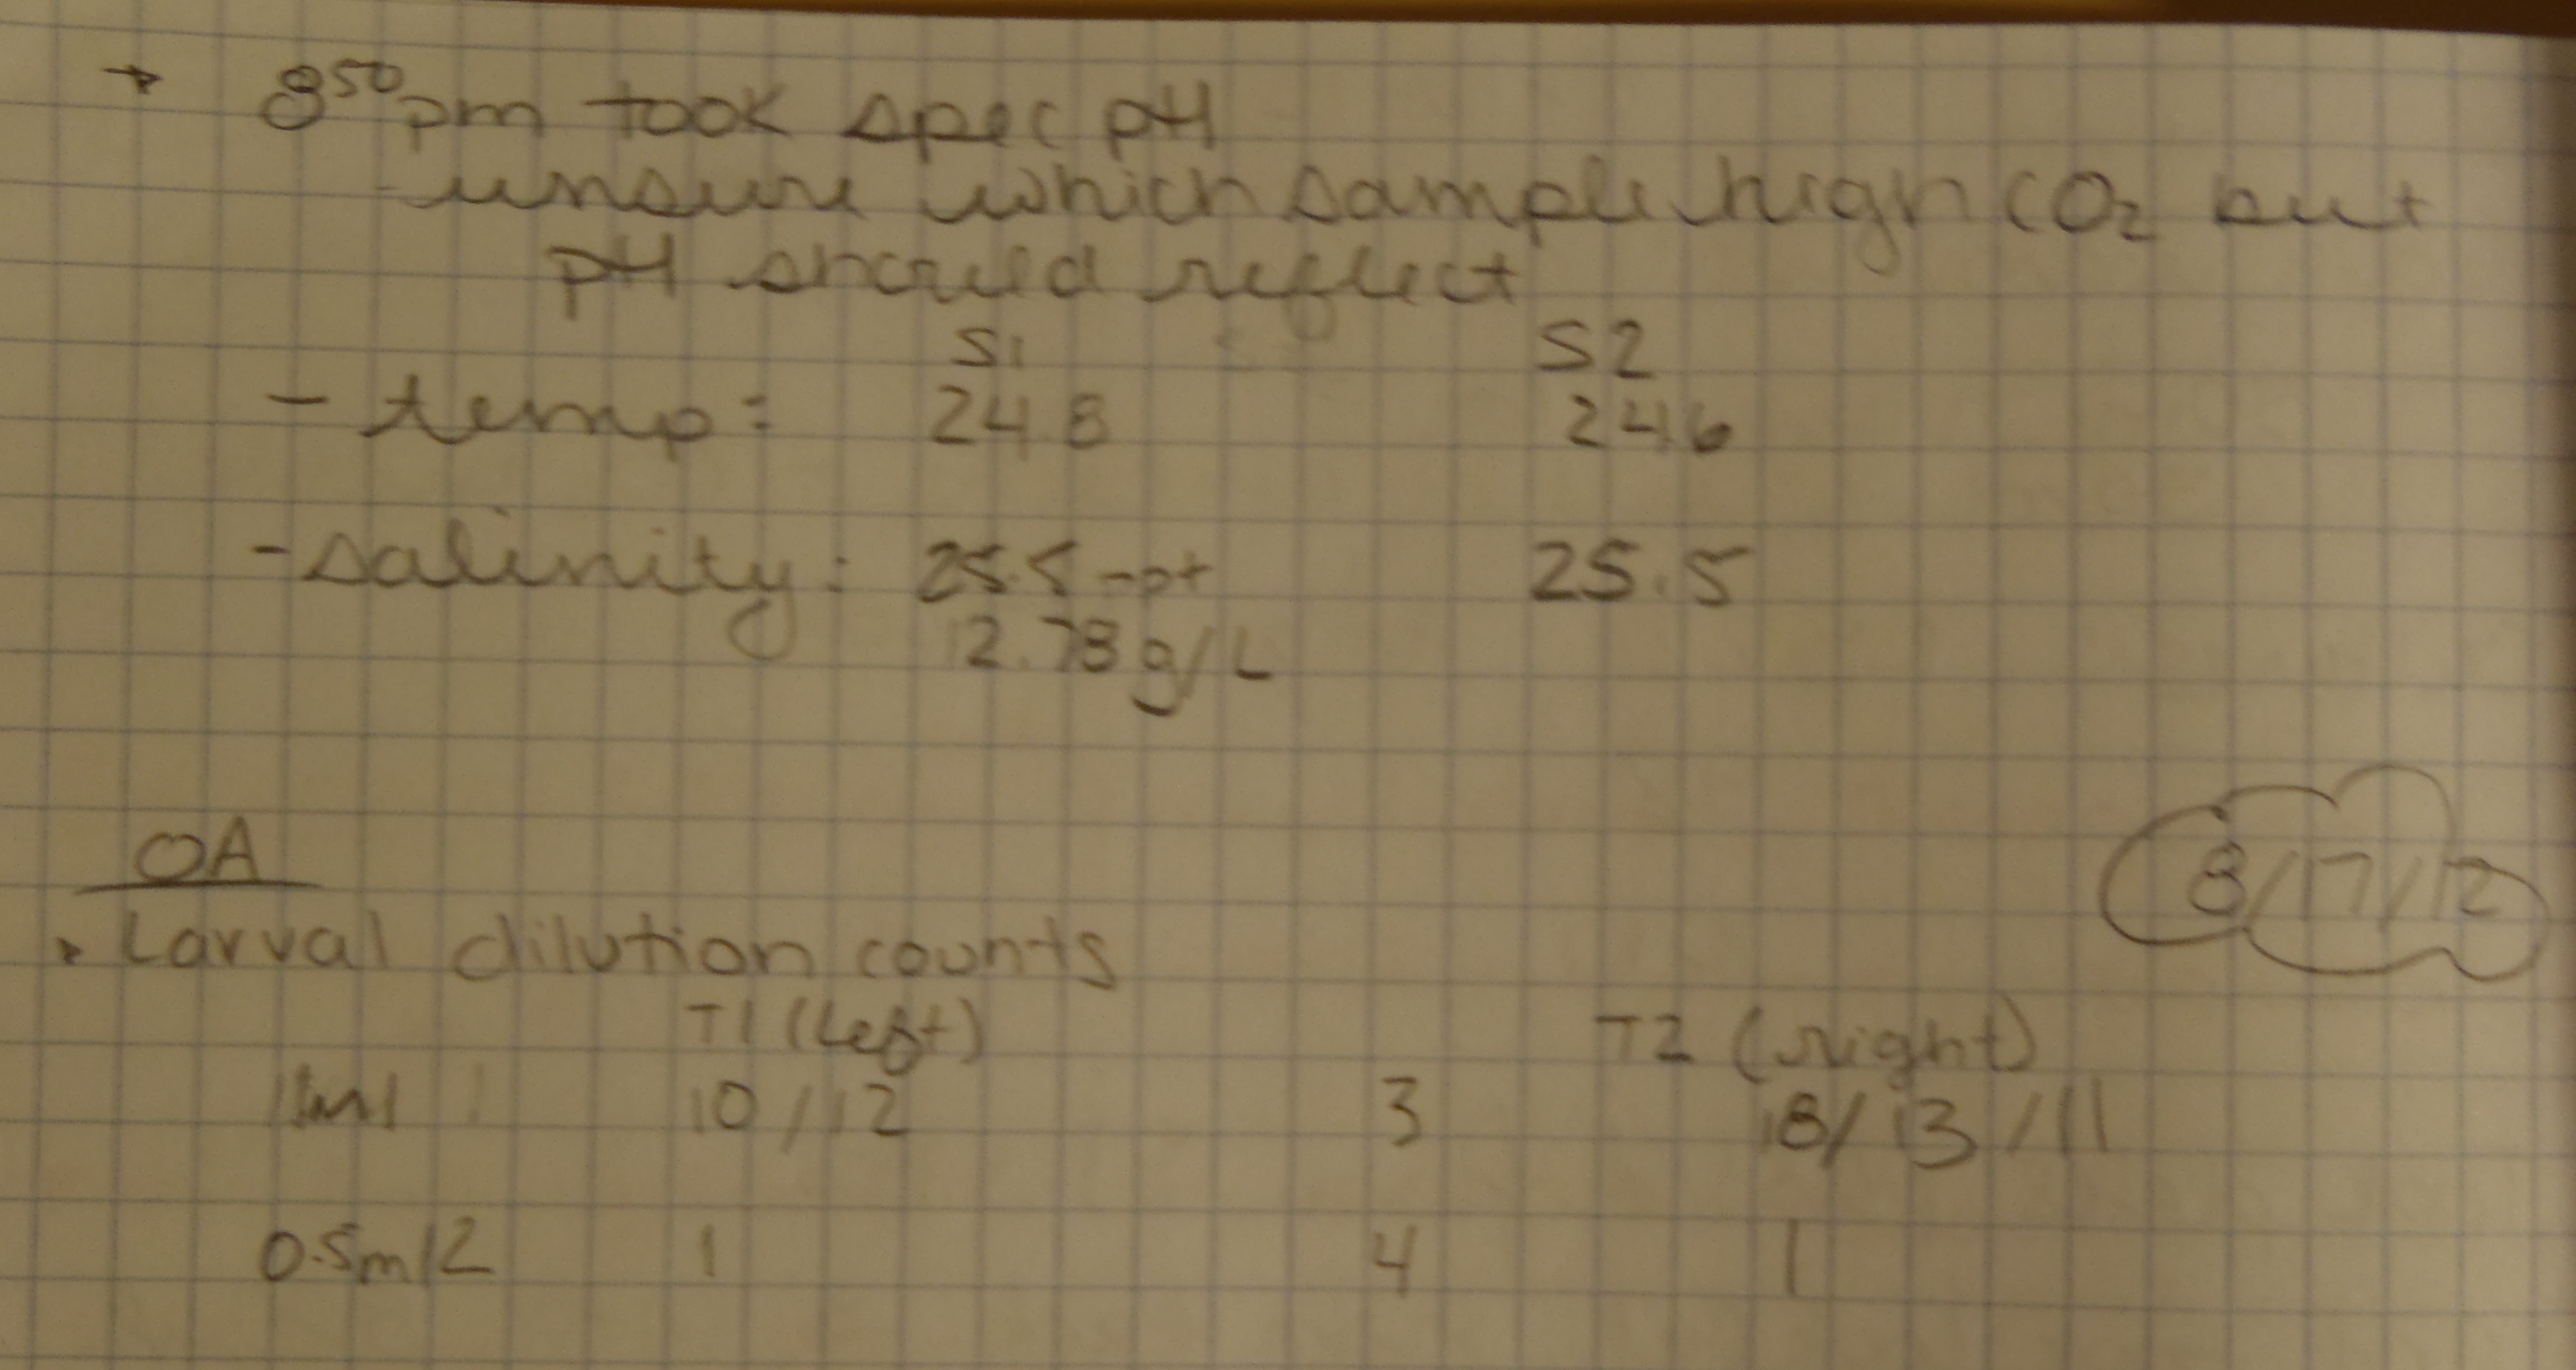 → 8⁵⁰pm took spec pH
- unsure which sample high CO₂ but
pH should reflect
S1 S2
- temp: 24.8 24.6
- salinity: 25.5 25.5
12.78 g/L
8/17/12
OA
Larval dilution counts
T1 (Left) T2 (right)
1 10/12 3 18/13/11
0.5ml 2 1 4 1